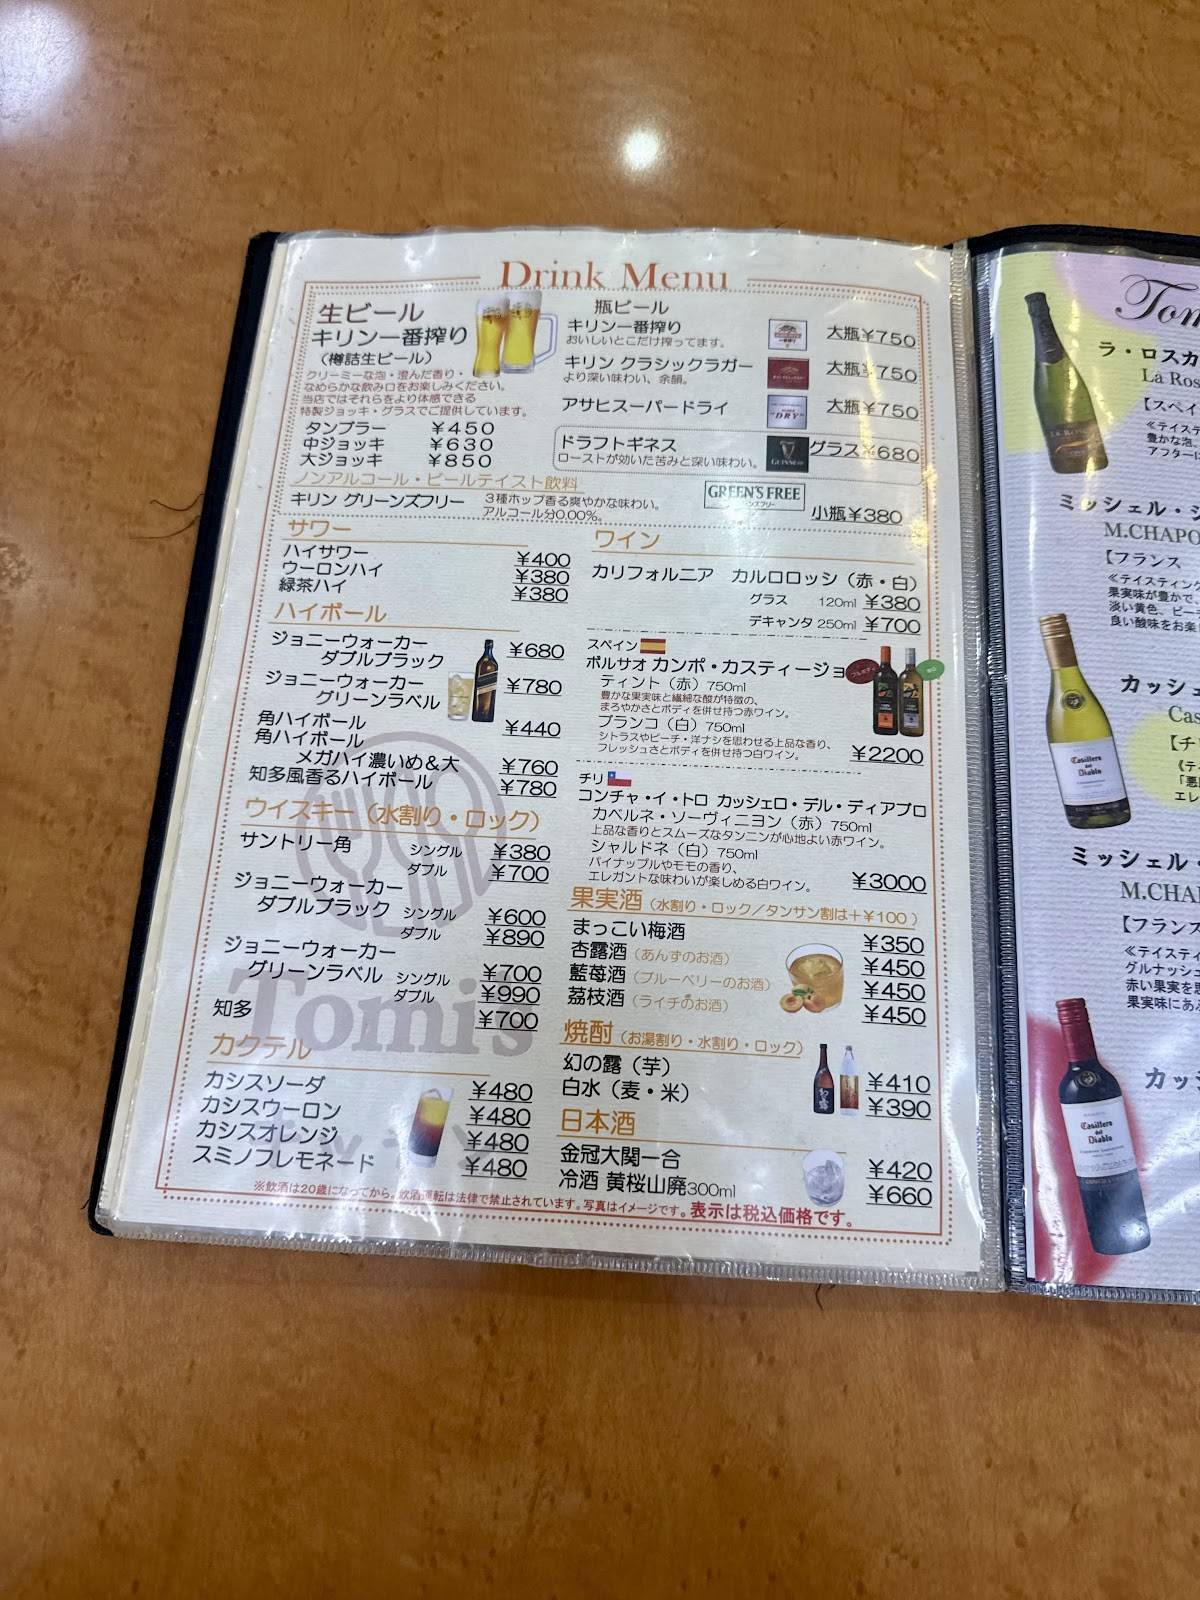 Drink Menu
生ビール
キリン一番搾り
(樽詰生ビール)
クリーミーな泡・澄んだ香り・
なめらかな飲み口をお楽しみください。
当店ではそれらをより体感できる
特製ジョッキ・グラスでご提供しています。
タンブラー ¥450
中ジョッキ ¥630
大ジョッキ ¥850
瓶ビール
キリン一番搾り 大瓶¥750
おいしいとこだけ搾ってます。
キリン クラシックラガー 大瓶¥750
より深い味わい、余韻。
アサヒスーパードライ 大瓶¥750
"DRY"
ドラフトギネス グラス¥680
ローストが効いた苦みと深い味わい。
GUINNESS
ノンアルコール・ビールテイスト飲料
キリン グリーンズフリー 3種ホップ香る爽やかな味わい。
アルコール分0.00%。
GREEN'S FREE
小瓶¥380
サワー
ハイサワー ¥400
ウーロンハイ ¥380
緑茶ハイ ¥380
ハイボール
ジョニーウォーカー
ダブルブラック ¥680
ジョニーウォーカー
グリーンラベル ¥780
角ハイボール ¥440
角ハイボール
メガハイ濃いめ&大 ¥760
知多風香るハイボール ¥780
ウイスキー(水割り・ロック)
サントリー角 シングル ¥380
ダブル ¥700
ジョニーウォーカー
ダブルブラック シングル ¥600
ダブル ¥890
ジョニーウォーカー
グリーンラベル シングル ¥700
ダブル ¥990
知多 ¥700
Tomi's
カクテル
カシスソーダ ¥480
カシスウーロン ¥480
カシスオレンジ ¥480
スミノフレモネード ¥480
ワイン
カリフォルニア カルロロッシ(赤・白)
グラス 120ml ¥380
デキャンタ 250ml ¥700
スペイン
ボルサオ カンポ・カスティージョ
ティント(赤)750ml
豊かな果実味と繊細な酸が特徴の、
まろやかさとボディを併せ持つ赤ワイン。
ブランコ(白)750ml
シトラスやピーチ・洋ナシを思わせる上品な香り、
フレッシュさとボディを併せ持つ白ワイン。 ¥2200
チリ
コンチャ・イ・トロ カッシェロ・デル・ディアブロ
カベルネ・ソーヴィニヨン(赤)750ml
上品な香りとスムーズなタンニンが心地よい赤ワイン。
シャルドネ(白)750ml
パイナップルやモモの香り、
エレガントな味わいが楽しめる白ワイン。 ¥3000
果実酒(水割り・ロック/タンサン割は+¥100)
まっこい梅酒 ¥350
杏露酒(あんずのお酒) ¥450
藍苺酒(ブルーベリーのお酒) ¥450
茘枝酒(ライチのお酒) ¥450
焼酎(お湯割り・水割り・ロック)
幻の露(芋) ¥410
白水(麦・米) ¥390
日本酒
金冠大関一合 ¥420
冷酒 黄桜山廃300ml ¥660
※飲酒は20歳になってから。飲酒運転は法律で禁止されています。写真はイメージです。表示は税込価格です。
Tom
ラ・ロスカ
La Ros
【スペイ
≪テイステ
豊かな泡、
アフターに
ミッシェル・シ
M.CHAPO
【フランス
≪テイスティング
果実味が豊かで、
淡い黄色、ピー
良い酸味をお楽し
カッシェ
Cas
【チ
≪テ
「悪
エレ
Casillero
del
Diablo
ミッシェル・
M.CHA
【フランス
≪テイスティ
グルナッシュ
赤い果実を思
果実味にあふ
カッ
Casillero
del
Diablo